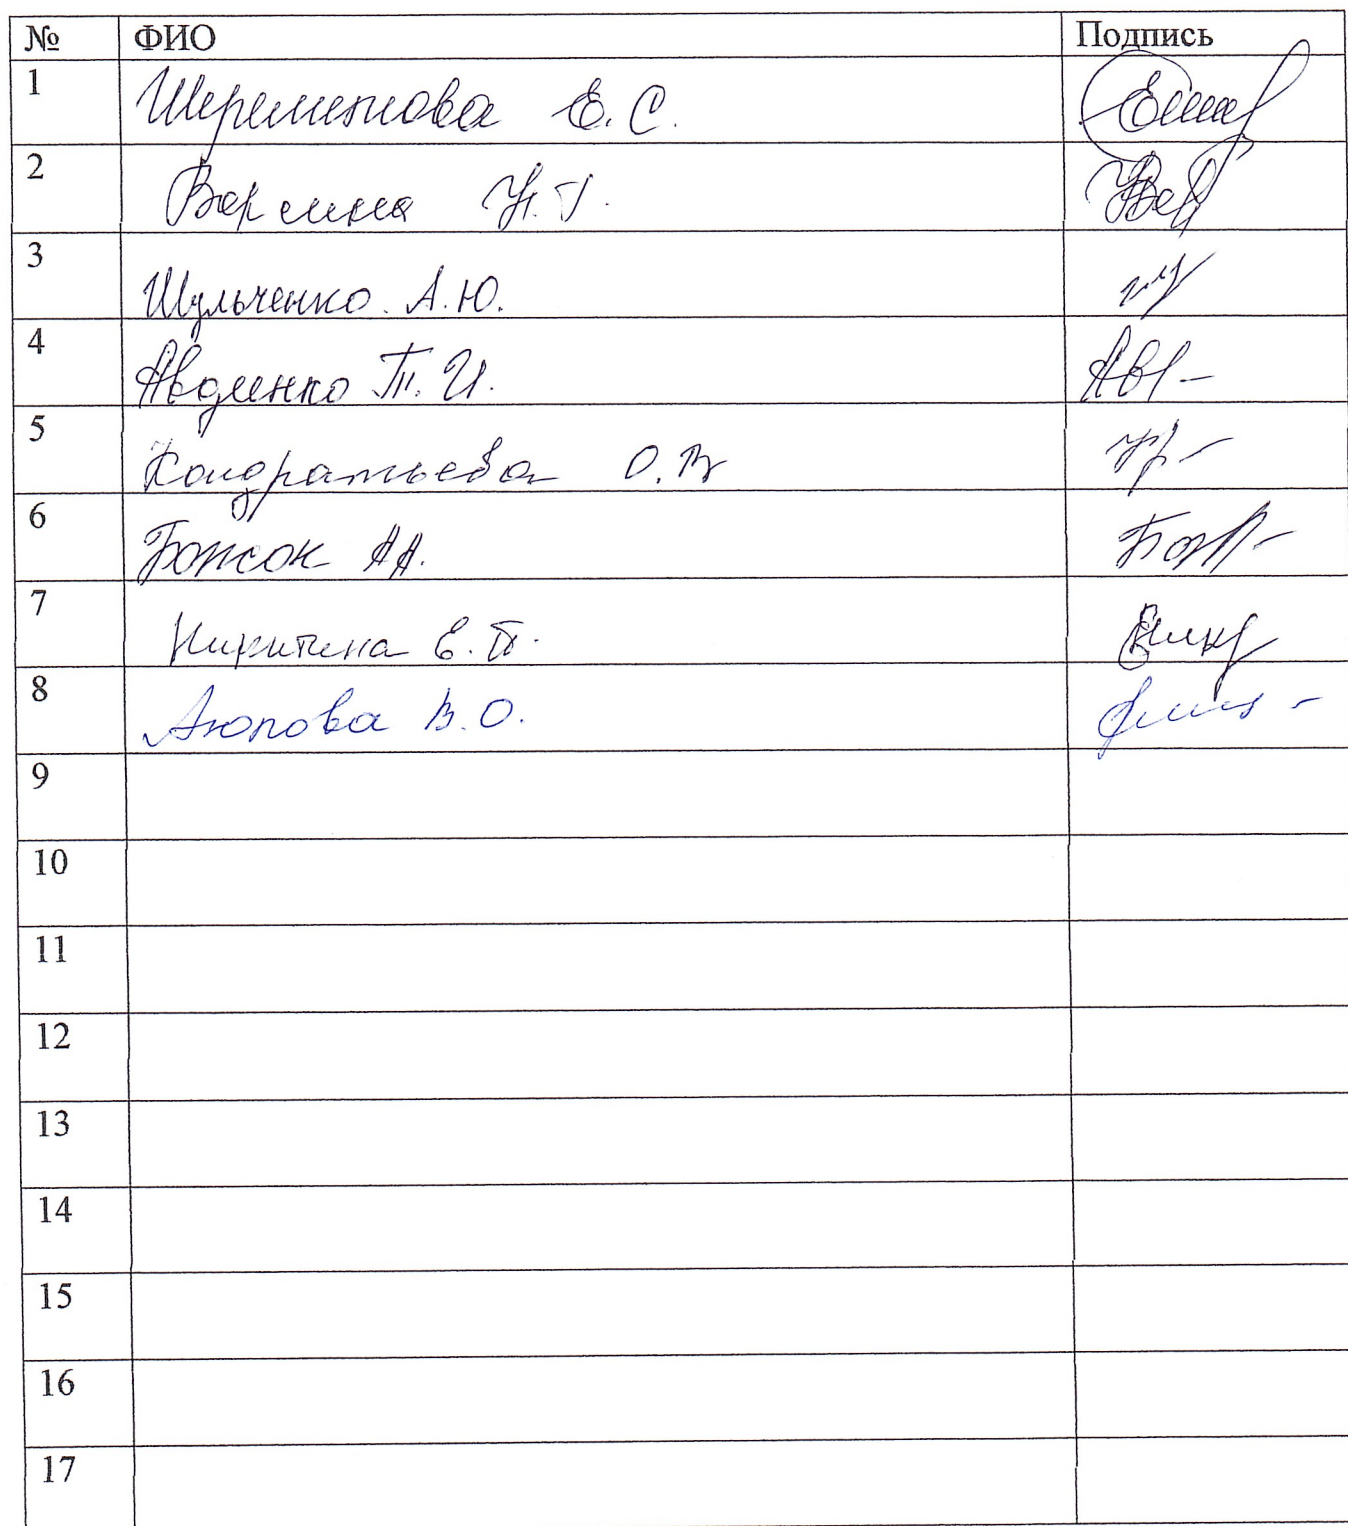 № ФИО Подпись
1 Шереметова Е. С.
2 Н.Г.
3 Шульченко А.Ю.
4 Авдиенко Т. И.
5 Кондратьева О.В
6 Божок А А.
7 Никитина Е. П.
8 Аюпова В.О.
9
10
11
12
13
14
15
16
17